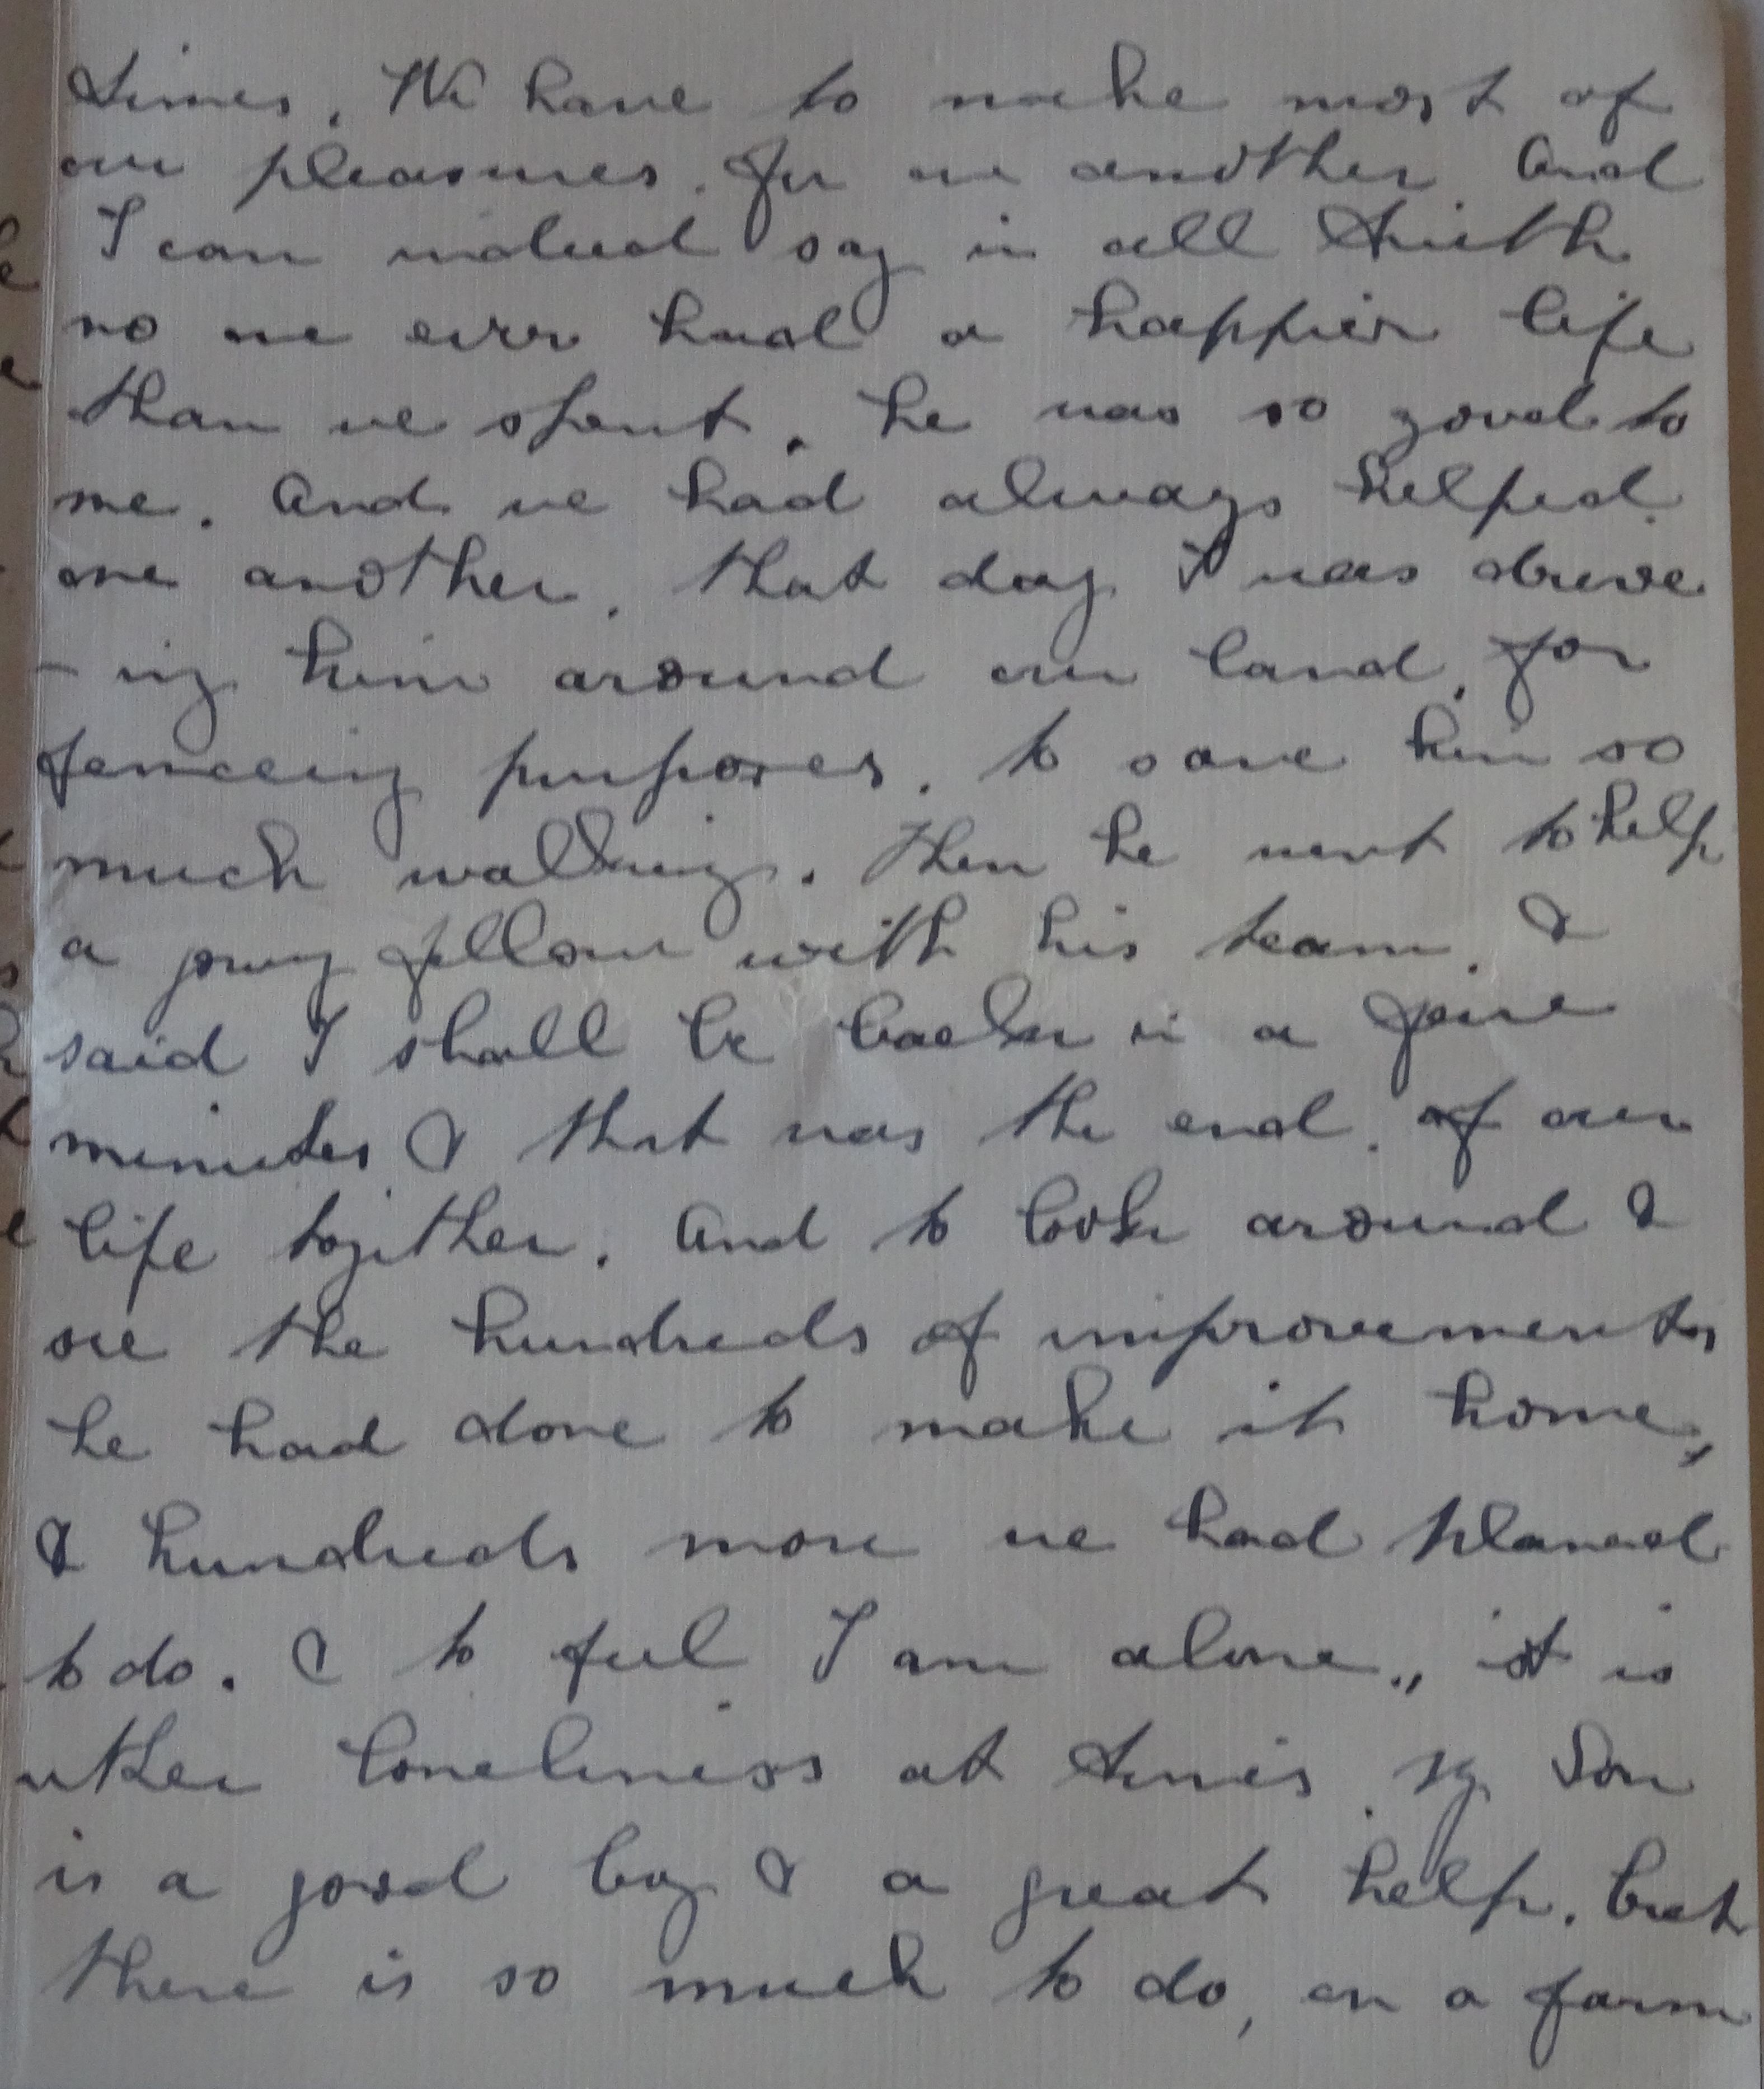 times. We have to make most of
our pleasures. In one another And
I can indeed say in all truth
no one ever had a happier life
than we spent. he was so good to
me. And we had always helped
one another. that day I was drive
- ing him around our land, for
fenceing purposes. to save him so
much walking. Then he went to help
a young fellow with his team. &
said I shall be back in a few
minutes & that was the end. of our
life together. And to look around &
see the hundreds of improvements
he had done to make it home,
& hundreds more we had planed
to do. & to feel I am alone,, it is
utter loneliness at times. My Son
is a good boy & a great help. but
there is so much to do, on a farm